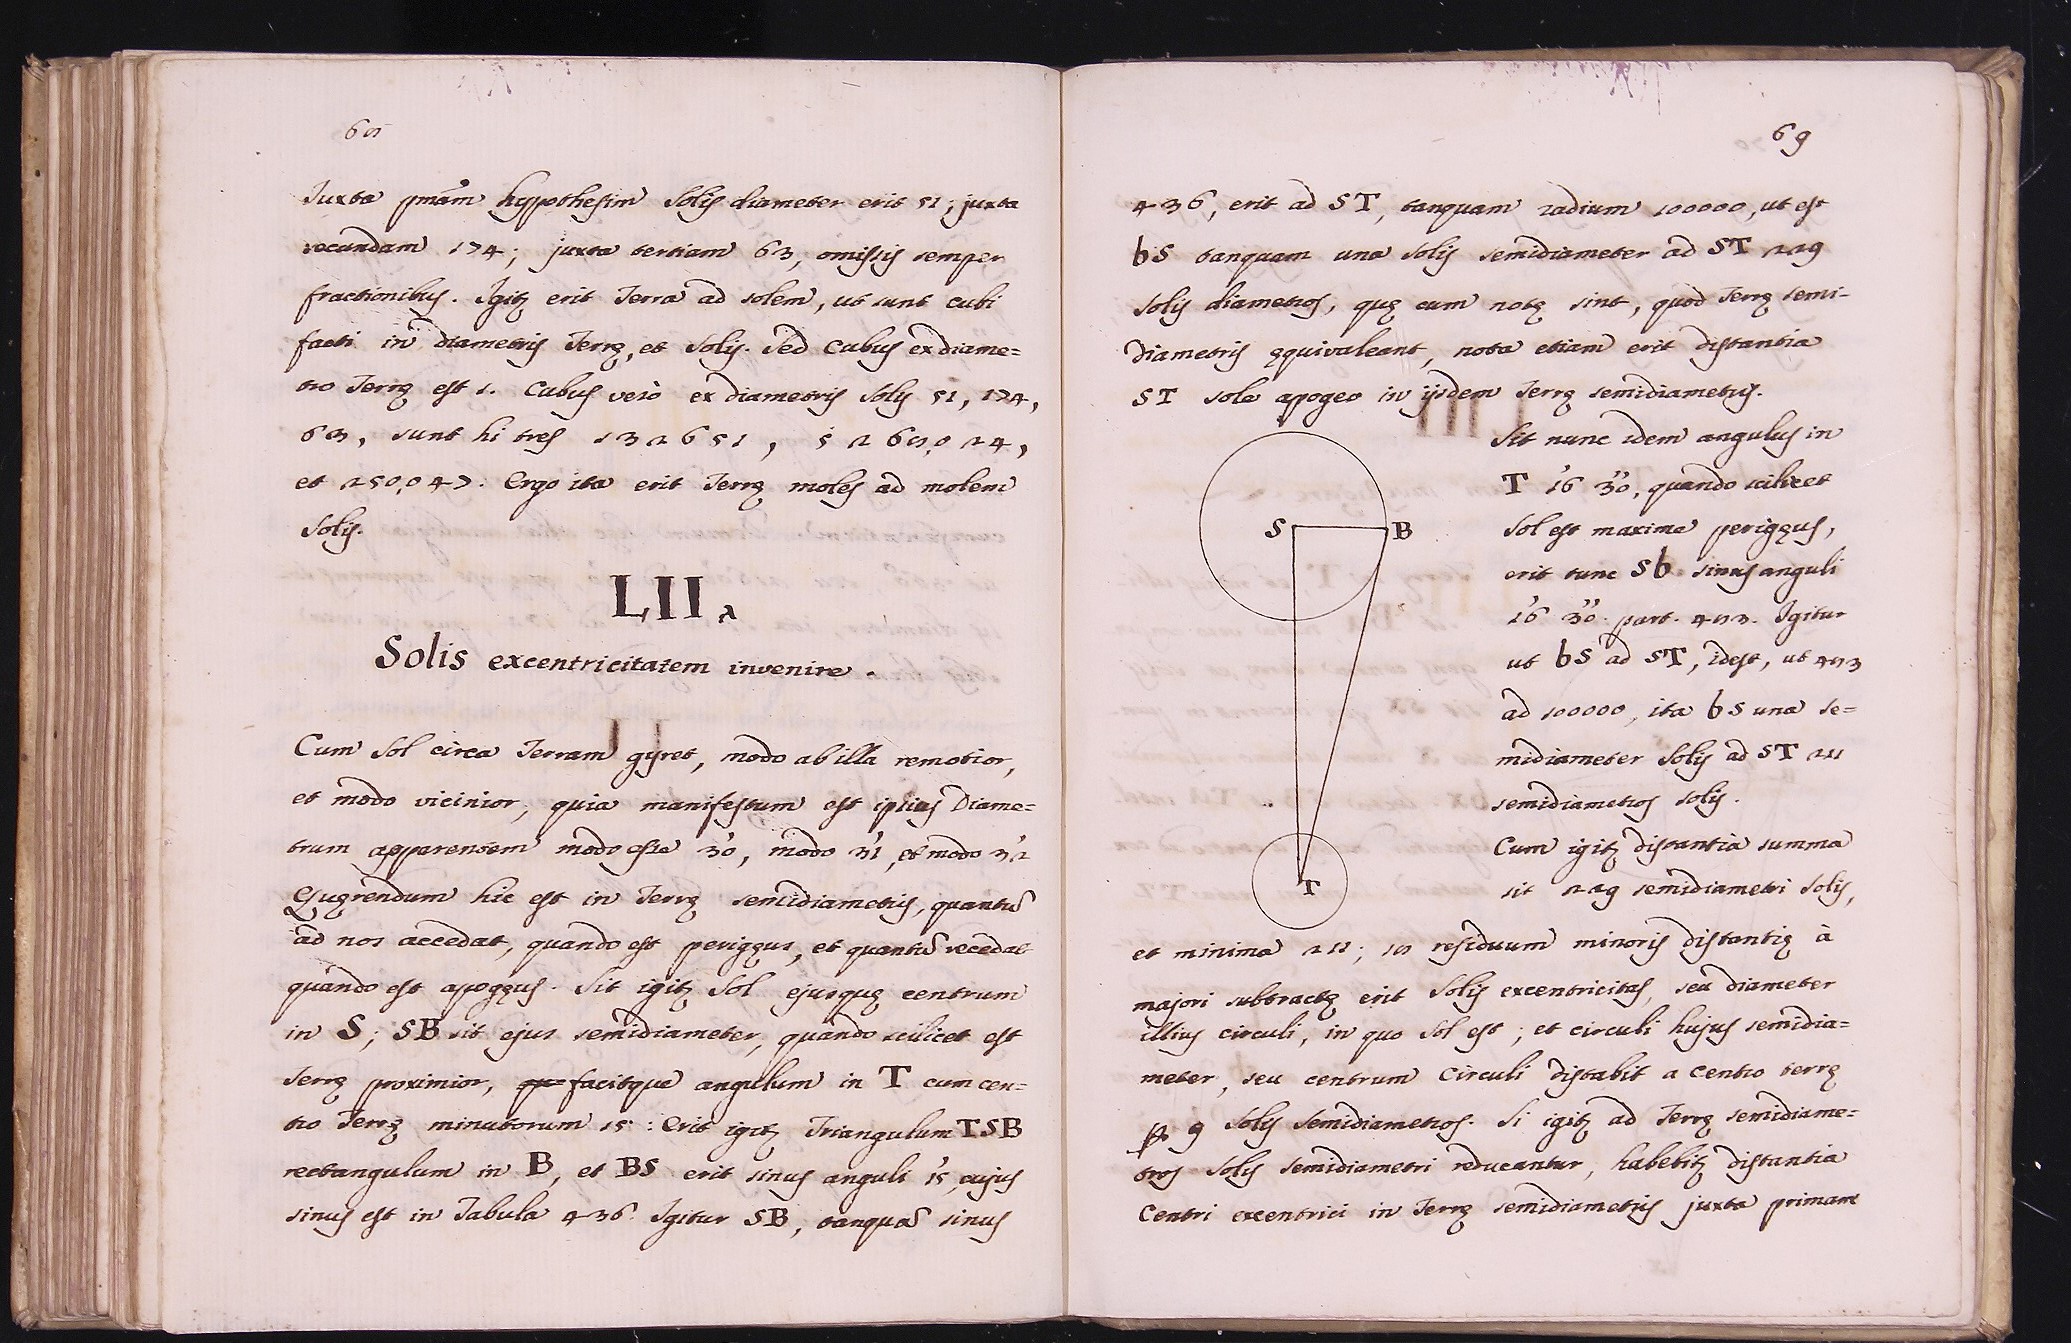 68
Juxta pmãm hypothesim Solis diameter erit 51; juxta
secundam 174; juxta tertiam 63, omissis semper
fractionibus. Igitʒ erit Terra ad solem, ut sunt cubi
facti in diametris Terrę, et Solis. Sed Cubus ex diame=
tro Terrę est 1. Cubus verò ex diametris Solis 51, 174,
63, sunt hi tres 132651, 5268,024,
et 250,047. Ergo ita erit Terrę moles ad molem
Solis.
LII.a
Solis excentricitatem invenire.
Cum Sol circa Terram gyret, modo ab illa remotior,
et modo vicinior, quia manifestum est ipsius Diame=
trum apparentem modo esse 30', modo 31', et modo 32'
Quęrendum hic est in Terrę semidiametris, quantũ
ad nos accedat, quando est perigęus, et quantũ recedat
quando est apogęus. Sit igitʒ Sol ejusquę centrum
in S; SB sit ejus semidiameter, quando scilicet est
Terrę proximior, facitque angulum in T cum cen=
tro Terrę minutorum 15: Erit igitʒ Triangulum TSB
rectangulum in B, et BS erit sinus anguli 15', cujus
sinus est in Tabula 436. Igitur SB, tanquã sinus
69
436, erit ad ST, tanquam radium 100000, ut est
bS tanquam una Solis semidiameter ad ST 229
Solis diametros, quę cum notę sint, quod Terrę semi-
diametris ęquivaleant, nota etiam erit distantia
ST sole apogeo in ijsdem Terrę semidiametris.
Sit nunc idem angulus in
T 16' 30'', quando scilicet
Sol est maxime perigęus,
erit tunc Sb sinus anguli
16' 30'' part. 483. Igitur
ut bS ad ST, idest, ut 483
ad 100000, ita bS una se=
midiameter Solis ad ST 211
semidiametros Solis.
Cum igitʒ distantia summa
sit 229 semidiametri Solis,
et minima 211; 18 residuum minoris distantię à
majori subtractę erit Solis excentricitas, seu diameter
illius circuli, in quo Sol est; et circuli hujus semidia=
meter, seu centrum Circuli distabit a centro terrę
p 9 Solis semidiametros. Si igitʒ ad Terrę semidiame=
tros Solis semidiametri reducantur, habebitʒ distantia
Centri excentrici in Terrę semidiametris juxta primam
S
B
T